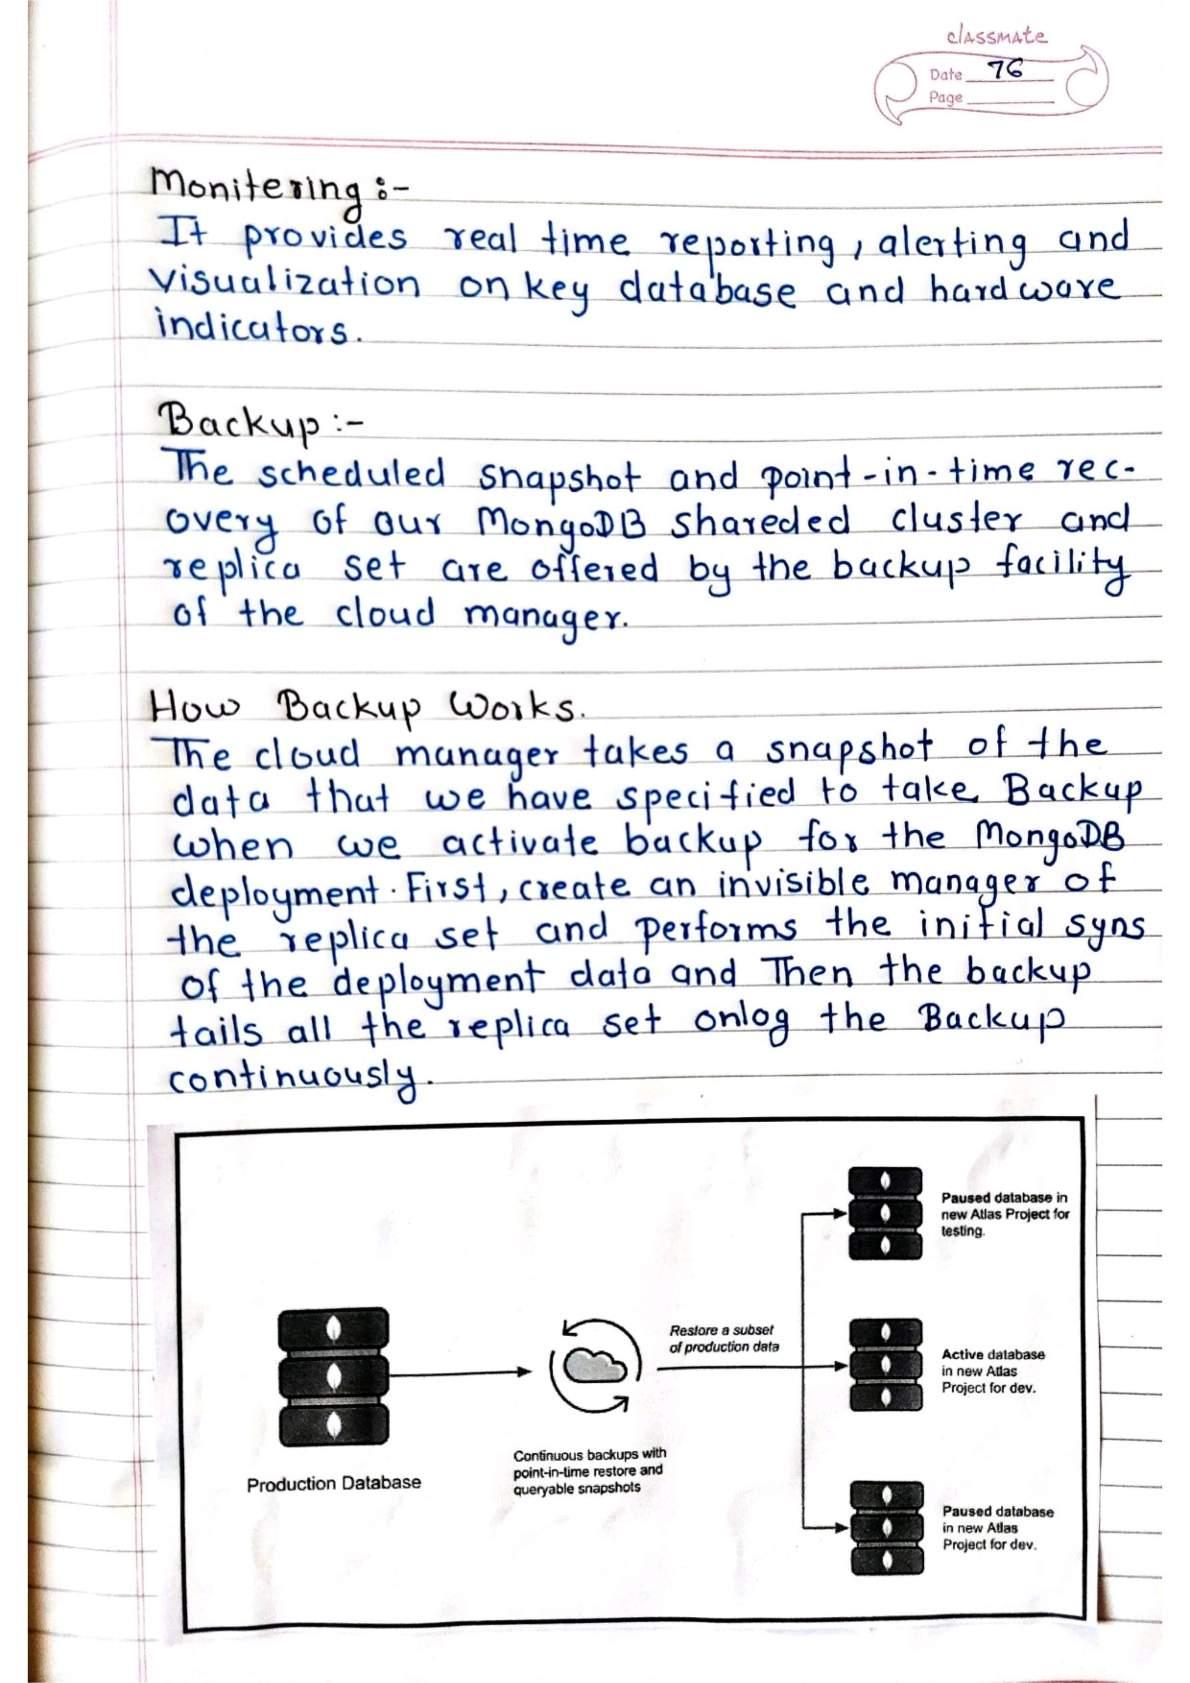 classmate
Date 76
Page
Monitering :-
It provides real time reporting, alerting and
visualization on key database and hardware
indicators.
Backup :-
The scheduled snapshot and point-in-time rec-
overy of our MongoDB shareded cluster and
replica set are offered by the backup facility
of the cloud manager.
How Backup Works.
The cloud manager takes a snapshot of the
data that we have specified to take Backup
when we activate backup for the MongoDB
deployment. First, create an invisible manager of
the replica set and performs the initial syns
of the deployment data and Then the backup
tails all the replica set onlog the Backup
continuously.
Paused database in
new Atlas Project for
testing.
Restore a subset
of production data
Active database
in new Atlas
Project for dev.
Production Database
Continuous backups with
point-in-time restore and
queryable snapshots
Paused database
in new Atlas
Project for dev.